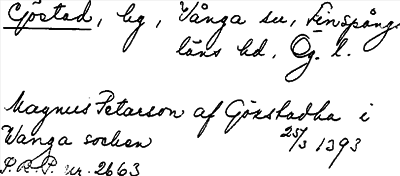 Göstad, by, Vånga sn, Finspångs
läns hd, Ög. l.
Magnus Petarson af Gözstadha i
Wanga sochen 25/3 1393
P.R.P. nr. 2663